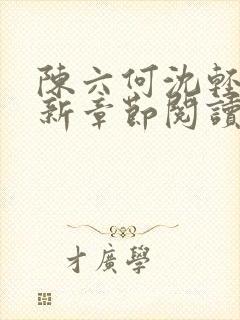 陳六何沈輕
新章節閱讀
才廣學